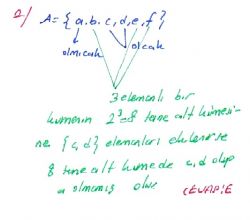 2) A = {a,b,c,d,e,f}
olmıcak olcak
3 elemanlı bir
kümenin 2³=8 tane alt kümesi-
ne {c,d} elemanları eklenirse
8 tane alt kümede c,d olup
a olmamış olur
CEVAP:E